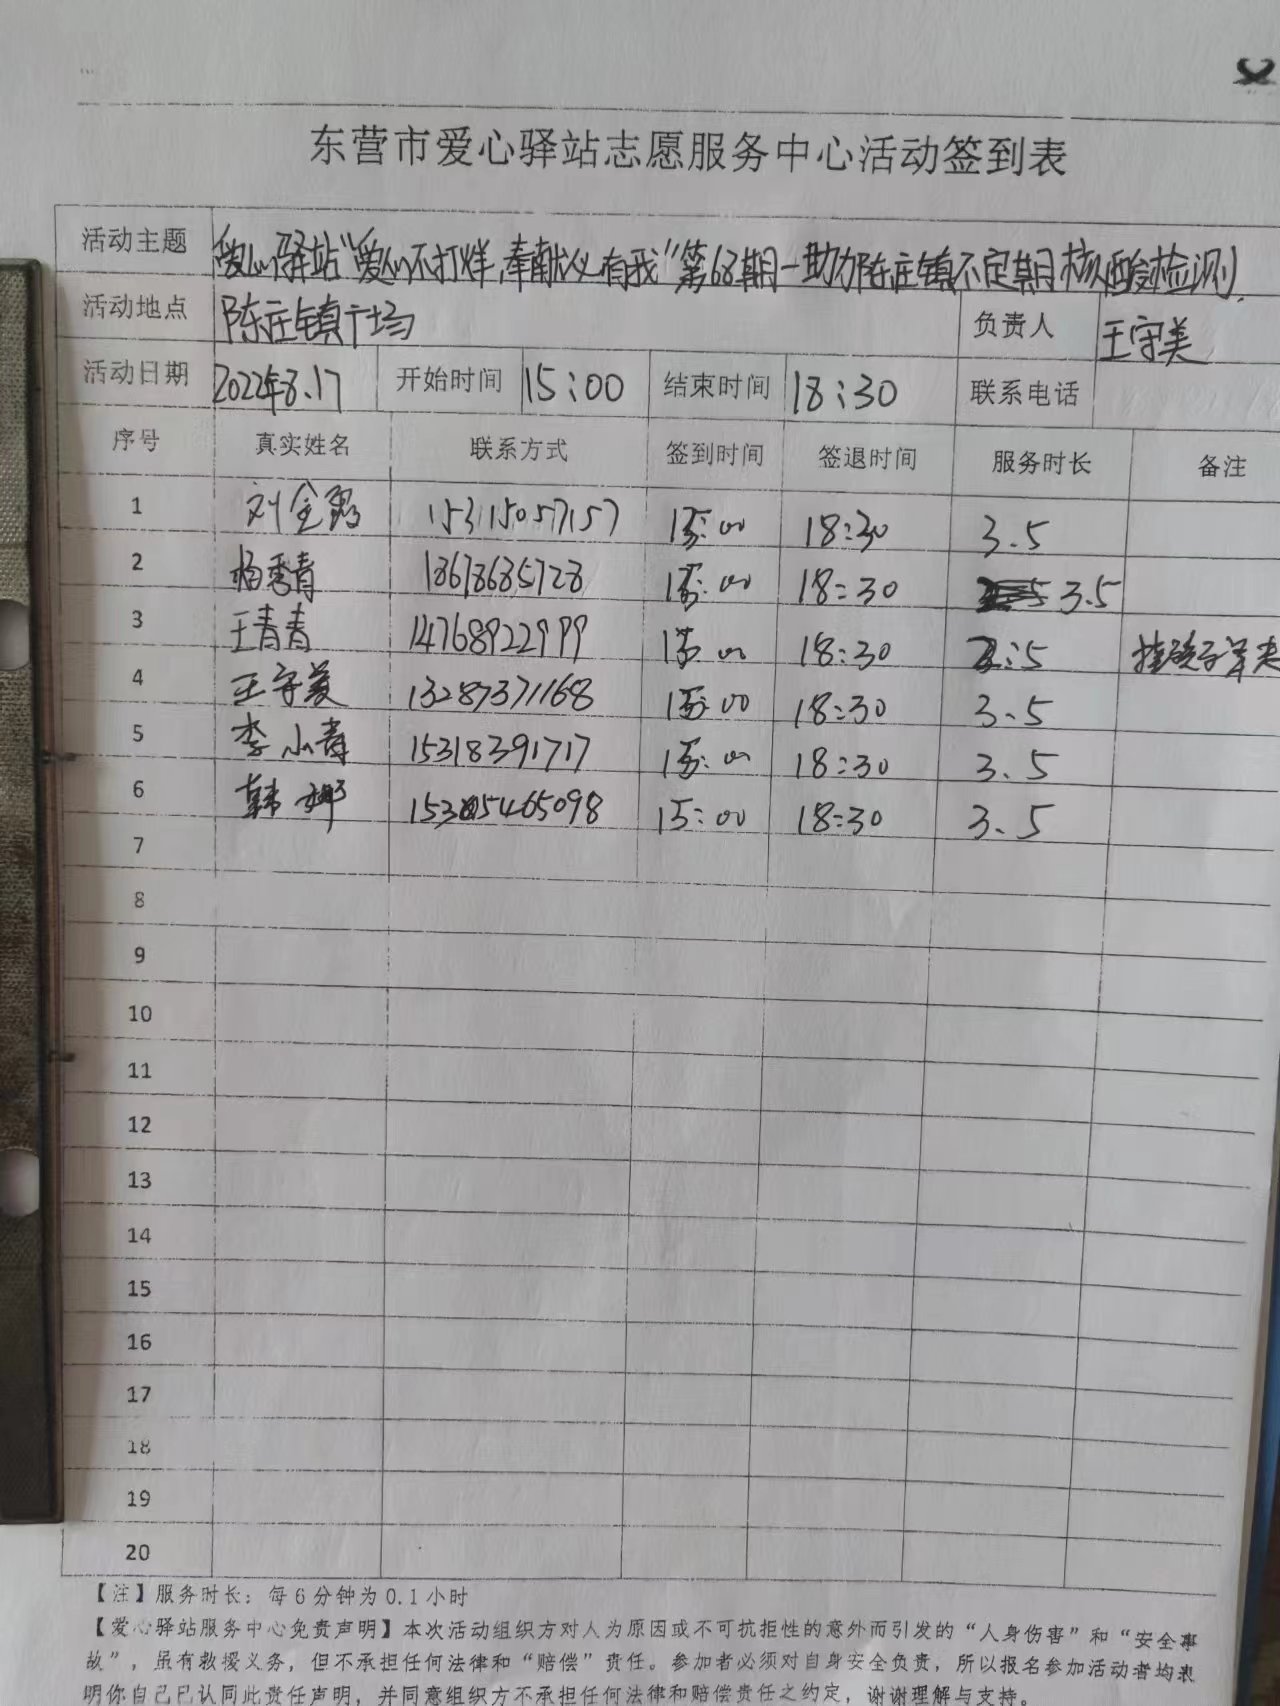 东营市爱心驿站志愿服务中心活动签到表
活动主题 爱心驿站“爱心不打烊,奉献义有我”第68期-助力陈庄镇不定期核酸检测
活动地点 陈庄镇广场 负责人 王守美
活动日期 2022年8.17 开始时间 15:00 结束时间 18:30 联系电话
序号 真实姓名 联系方式 签到时间 签退时间 服务时长 备注
1 刘金 15315057157 15:00 18:30 3.5
2 杨秀青 18678685728 15:00 18:30 3.5
3 王青青 14768922999 15:00 18:30 2.5
4 王守美 13287371168 15:00 18:30 3.5
5 李小青 15318391717 15:00 18:30 3.5
6 韩娜 15305465098 15:00 18:30 3.5
7
8
9
10
11
12
13
14
15
16
17
18
19
20
【注】服务时长：每6分钟为0.1小时
【爱心驿站服务中心免责声明】本次活动组织方对人为原因或不可抗拒性的意外而引发的“人身伤害”和“安全事
故”，虽有救援义务，但不承担任何法律和“赔偿”责任。参加者必须对自身安全负责，所以报名参加活动者均表
明你自己已认同此责任声明，并同意组织方不承担任何法律和赔偿责任之约定，谢谢理解与支持。